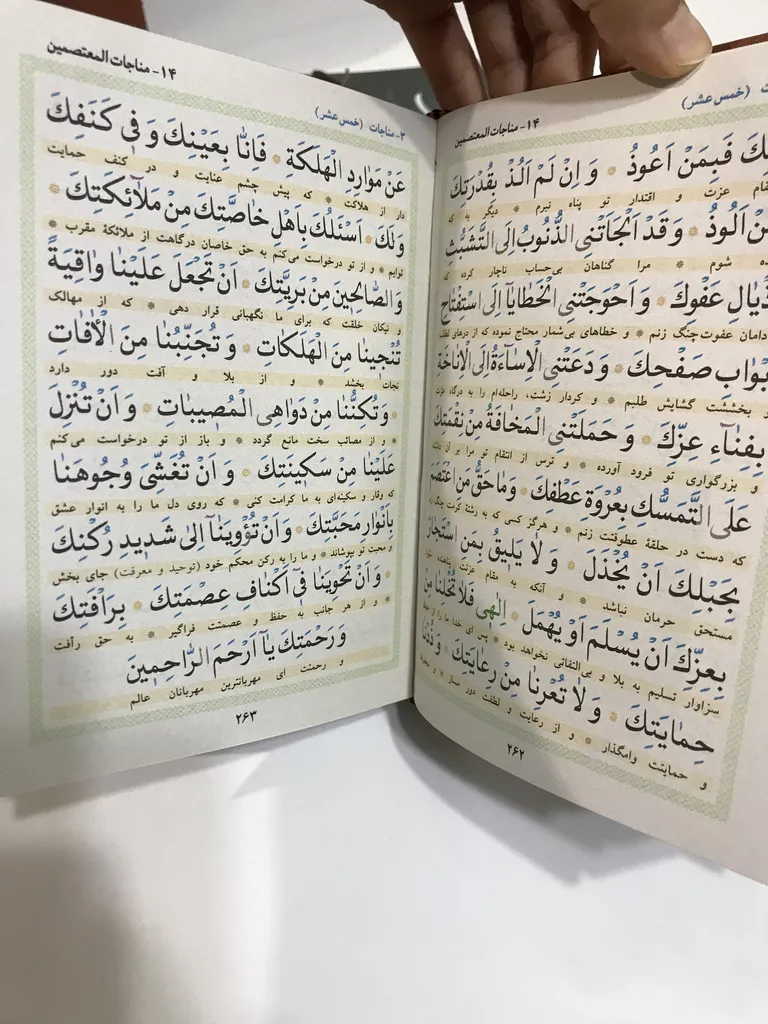 ۱۴- مناجات المعتصمین
(خمس عشر)
فَبِمَنْ اَعُوذُ * وَ اِنْ لَمْ اَلُذْ بِقُدْرَتِكَ
عزت و اقتدار تو پناه نبرم * دیگر به
اَلُوذُ * وَ قَدْ اَلْجَاَتْنِى الذُّنُوبُ اِلَى التَّشَبُّثِ
شوم * مرا گناهان بی‌حساب ناچار کرده که
عَفْوِكَ * وَ اَحْوَجَتْنِى الْخَطايا اِلَى اسْتِفْتاحِ
دامان عفوت چنگ زنم * و خطاهای بی‌شمار محتاج نموده که از درهای لطف
صَفْحِكَ * وَ دَعَتْنِى الْاِسآءَةُ اِلَى الْاِناخَةِ
بخششت گشایش طلبم * و کردار زشت، راحله‌ام را به درگاه عزت
بِفِنآءِ عِزِّكَ * وَ حَمَلَتْنِى الْمَخافَةُ مِنْ نِقْمَتِكَ
و بزرگواری تو فرود آورده * و ترس از انتقام تو مرا بر آن داشت
عَلَى التَّمَسُّكِ بِعُرْوَةِ عَطْفِكَ * وَ ما حَقُّ مَنِ اعْتَصَمَ
که دست در حلقهٔ عطوفتت زنم * و هرگز کسی که به رشتهٔ کرمت چنگ زد
بِحَبْلِكَ اَنْ يُخْذَلَ * وَ لا يَليقُ بِمَنِ اسْتَجارَ
مستحق حرمان نباشد * و آنکه به مقام عزتت پناهنده شود
بِعِزِّكَ اَنْ يُسْلَمَ اَوْ يُهْمَلَ * اِلٰهى فَلا تُخْلِنا مِنْ
سزاوار تسلیم به بلا و بی‌التفاتی نخواهد بود * پس ای خدا ما را از حفظ
حِمايَتِكَ * وَ لا تُعْرِنا مِنْ رِعايَتِكَ * وَ ذُدْنا
و حمایتت وامگذار * و از رعایت و لطفت دور مساز *
۲۶۲
۱۴- مناجات المعتصمین
۳- مناجات (خمس عشر)
عَنْ مَوارِدِ الْهَلَكَةِ * فَاِنّا بِعَيْنِكَ وَ فى كَنَفِكَ
دار از هلاکت * که پیش چشم عنایت و در کنف حمایت
وَ لَكَ * اَسْئَلُكَ بِاَهْلِ خاصَّتِكَ مِنْ مَلآئِكَتِكَ *
توایم * و از تو درخواست می‌کنم به حق خاصان درگاهت از ملائکهٔ مقرب *
وَ الصّالِحينَ مِنْ بَرِيَّتِكَ * اَنْ تَجْعَلَ عَلَيْنا واقِيَةً
و نیکان خلقت که برای ما نگهبانی قرار دهی * که از مهالک
تُنْجينا مِنَ الْهَلَكاتِ * وَ تُجَنِّبُنا مِنَ الْاٰفاتِ
نجات بخشد * و از بلا و آفت دور دارد
وَ تُكِنُّنا مِنْ دَواهِى الْمُصيباتِ * وَ اَنْ تُنْزِلَ
* و از مصائب سخت مانع گردد * و باز از تو درخواست می‌کنم
عَلَيْنا مِنْ سَكينَتِكَ * وَ اَنْ تُغَشِّىَ وُجُوهَنا
که وقار و سکینه‌ای به ما کرامت کنی * که روی دل ما را به انوار عشق
بِاَنْوارِ مَحَبَّتِكَ * وَ اَنْ تُؤْوِيَنآ اِلى شَديدِ رُكْنِكَ
و محبت تو بپوشاند * و ما را به رکن محکم خود (توحید و معرفت) جای بخش
* وَ اَنْ تَحْوِيَنا فى اَكْنافِ عِصْمَتِكَ * بِرَاْفَتِكَ
* و از هر جانب به حفظ و عصمتت فراگیر * به حق رأفت
وَ رَحْمَتِكَ يآ اَرْحَمَ الرّاحِمينَ
و رحمتت ای مهربانترین مهربانان عالم
۲۶۳